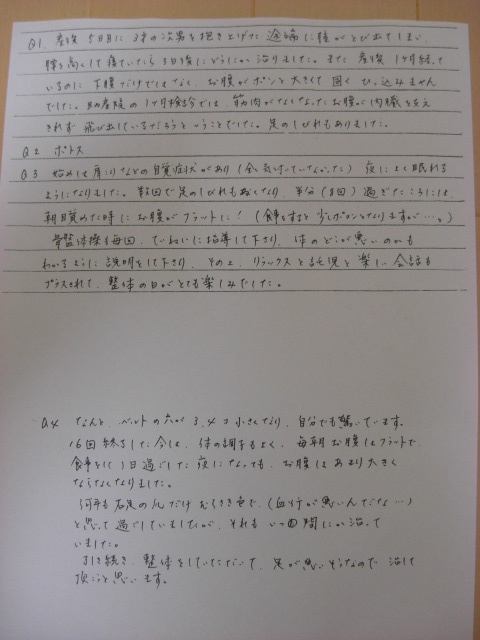 Q1 産後5日目に3才の次男を抱き上げた途端に腰がとび出てしまい
腰を高くして寝ていたら3日後にどうにか治りました。また産後1ヶ月経って
いるのに下腹だけではなく、お腹がポンと大きくて固くひっ込みません
でした。助産院の1ヶ月検診では、筋肉がなくなったお腹が内臓を支え
きれず飛び出しているだろうということでした。足のしびれもありました。
Q2 ポトス
Q3 始めは肩こりなどの自覚症状があり(全く気付いていなかった)夜によく眠れる
ようになりました。数回で足のしびれもなくなり、半分(8回)過ぎたころには、
朝目覚めた時にお腹がフラットに!(食事をすると少しポコンとなりますが…。)
骨盤体操も毎回、ていねいに指導して下さり、体のどこが悪いのかも
わかるように説明をして下さり、その上、リラックスと託児と楽しい会話も
プラスされて、整体の日がとても楽しみでした。
Q4 なんと、ベルトの穴が3、4コ小さくなり、自分でも驚いています。
16回終了した今は、体の調子もよく、毎朝お腹はフラットで、
食事をして1日過ごした夜になっても、お腹はあまり大きく
ならなくなりました。
何年も右足の爪だけむらさき色で、(血行が悪いんだな…)
と思って過ごしていましたが、それもいつの間にか治って
いました。
引き続き、整体をしていただいて、足が悪そうなので治して
頂こうと思います。